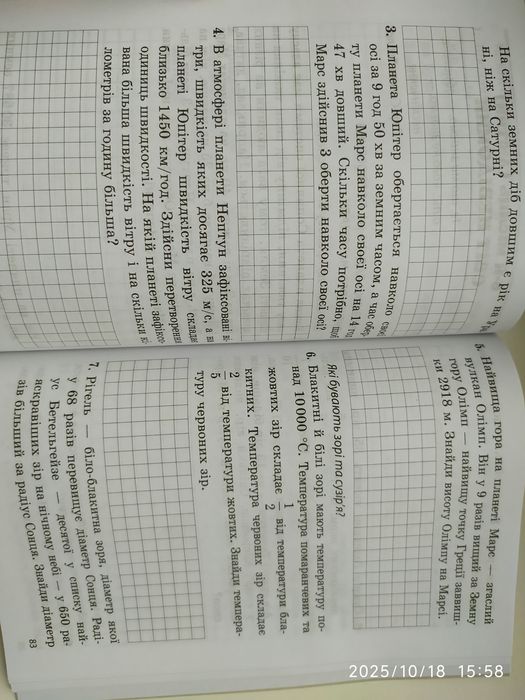 На скільки земних діб довшим є рік на
ні, ніж на Сатурні?
3. Планета Юпітер обертається навколо своєї
осі за 9 год 50 хв за земним часом, а час обер
ту планети Марс навколо своєї осі на 14 год
47 хв довший. Скільки часу потрібно, щоб
Марс здійснив 3 оберти навколо своєї осі?
4. В атмосфері планети Нептун зафіксовані ві
три, швидкість яких досягає 325 м/с, а на
планеті Юпітер швидкість вітру склада
близько 1450 км/год. Здійсни перетворення
одиниць швидкості. На якій планеті зафіксо
вана більша швидкість вітру і на скільки кі
лометрів за годину більша?
5. Найвища гора на планеті Марс — згаслий
вулкан Олімп. Він у 9 разів вищий за Земну
гору Олімп — найвищу точку Греції заввиш-
ки 2918 м. Знайди висоту Олімпу на Марсі.
Які бувають зорі та сузір'я?
6. Блакитні й білі зорі мають температуру по-
над 10 000 °С. Температура помаранчевих та
жовтих зір складає 1/2 від температури бла-
китних. Температура червоних зір складає
2/5 від температури жовтих. Знайди темпера-
туру червоних зір.
7. Рігель — біло-блакитна зоря, діаметр якої
у 68 разів перевищує діаметр Сонця. Раді-
ус Бетельгейзе — десятої у списку най-
яскравіших зір на нічному небі — у 650 ра-
зів більший за радіус Сонця. Знайди діаметр
83
2025/10/18 15:58